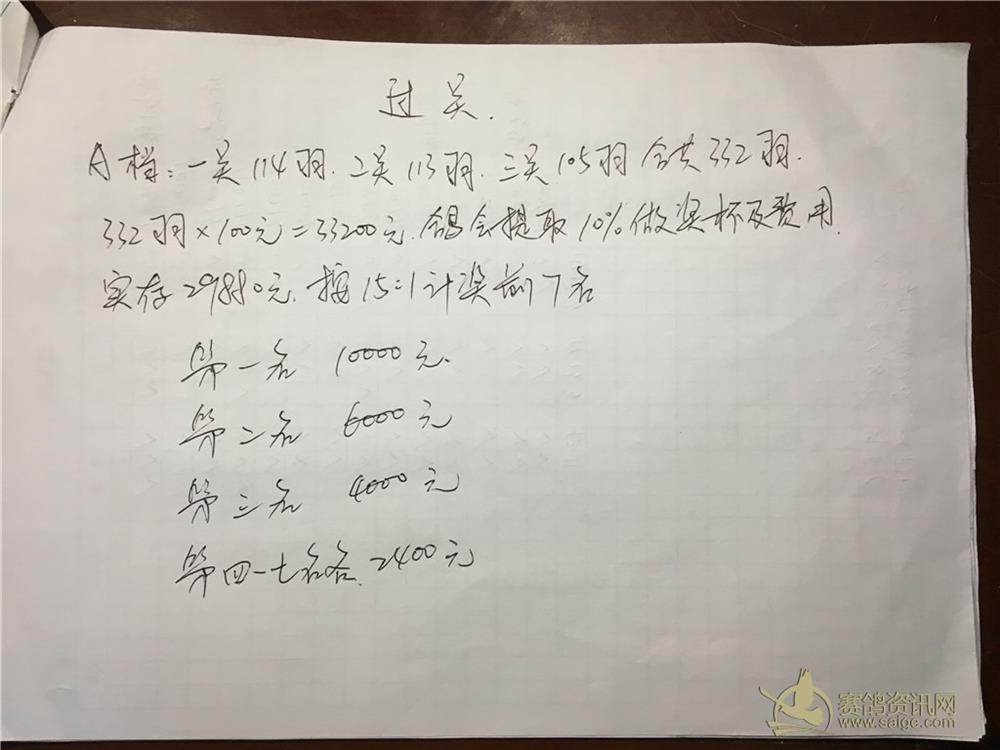 过关.
A档:一关114羽.二关113羽.三关105羽合共332羽.
332羽×100元=33200元.鸽会提取10%做奖杯及费用.
实存29880元.按15:1计奖前7名
第一名 10000元.
第二名 6000元
第三名 4000元
第四一七名各.2400元
赛鸽资讯网
www.saigc.com